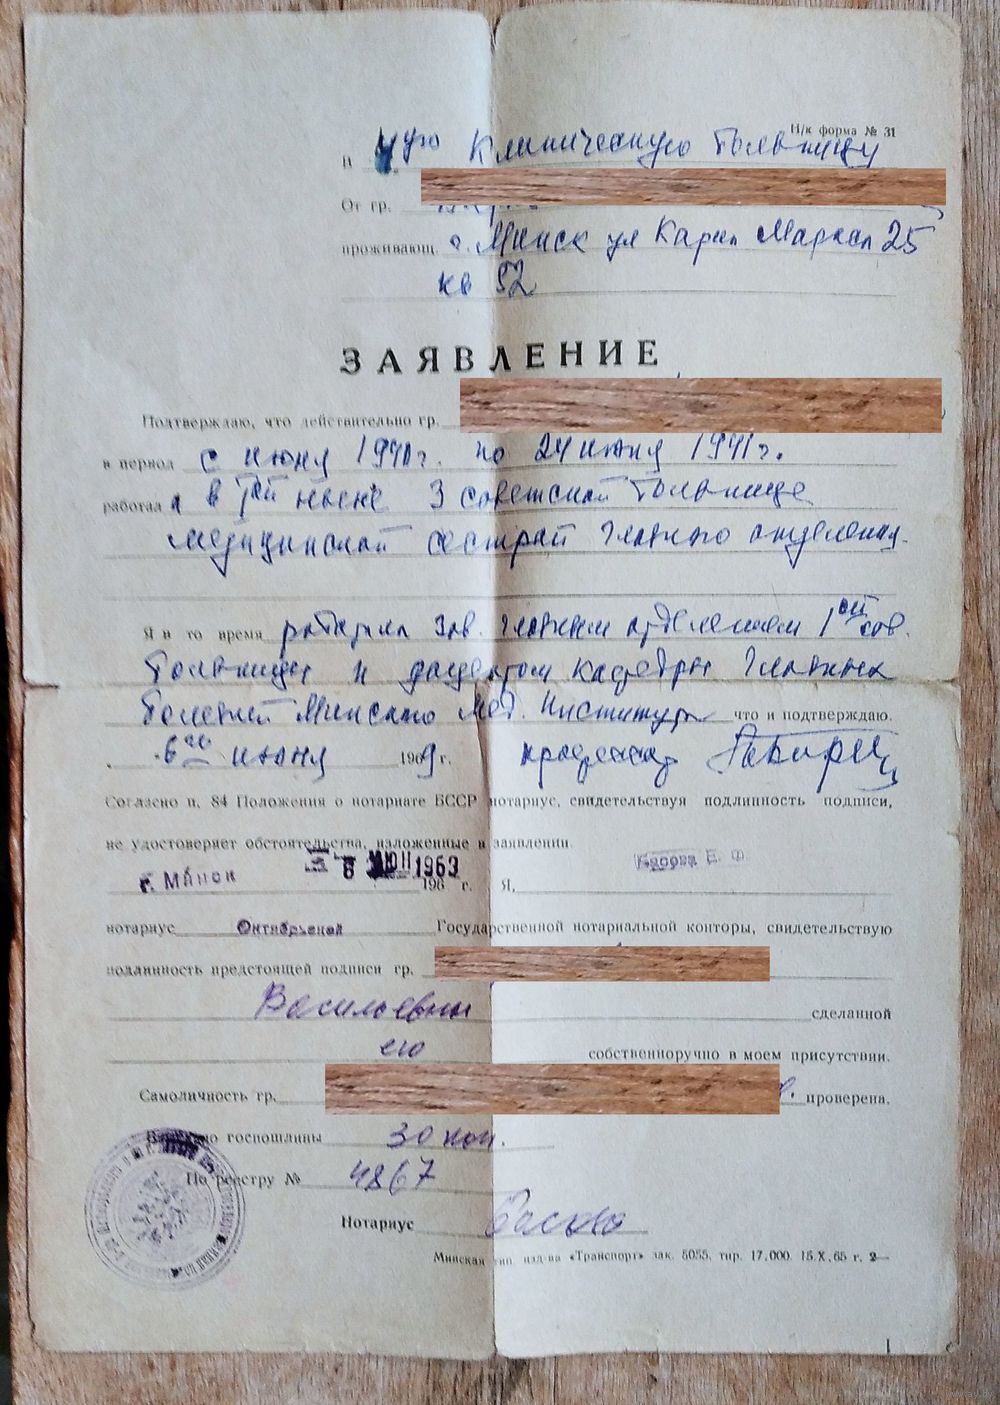 Н/к форма № 31
В 4ую Клиническую больницу
От гр.
проживающ. г. Минск ул Карла Маркса 25
кв 52
ЗАЯВЛЕНИЕ
Подтверждаю, что действительно гр.
в период с июня 1940г. по 24 июня 1941г.
работала в 1ой ныне 3 советской больнице
медицинской сестрой глазного отделения.
Я в то время работала зав. глазным отделением 1ой сов.
больницы и доцентом кафедры глазных
болезней Минского мед. института что и подтверждаю.
6го июня 1969 г. профессор
Согласно п. 84 Положения о нотариате БССР нотариус, свидетельствуя подлинность подписи,
не удостоверяет обстоятельства, изложенные в заявлении.
г. Минск 6 ИЮН 1969 196 г. Я, Басова Е. Ф.
нотариус Октябрьской Государственной нотариальной конторы, свидетельствую
подлинность предстоящей подписи гр.
Васильевны сделанной
его собственноручно в моем присутствии.
Самоличность гр. проверена.
госпошлины 30 коп.
По реестру № 4867
Нотариус Басова
Минская тип. изд-ва «Транспорт» зак. 5055. тир. 17.000. 15.X.65 г. 2—